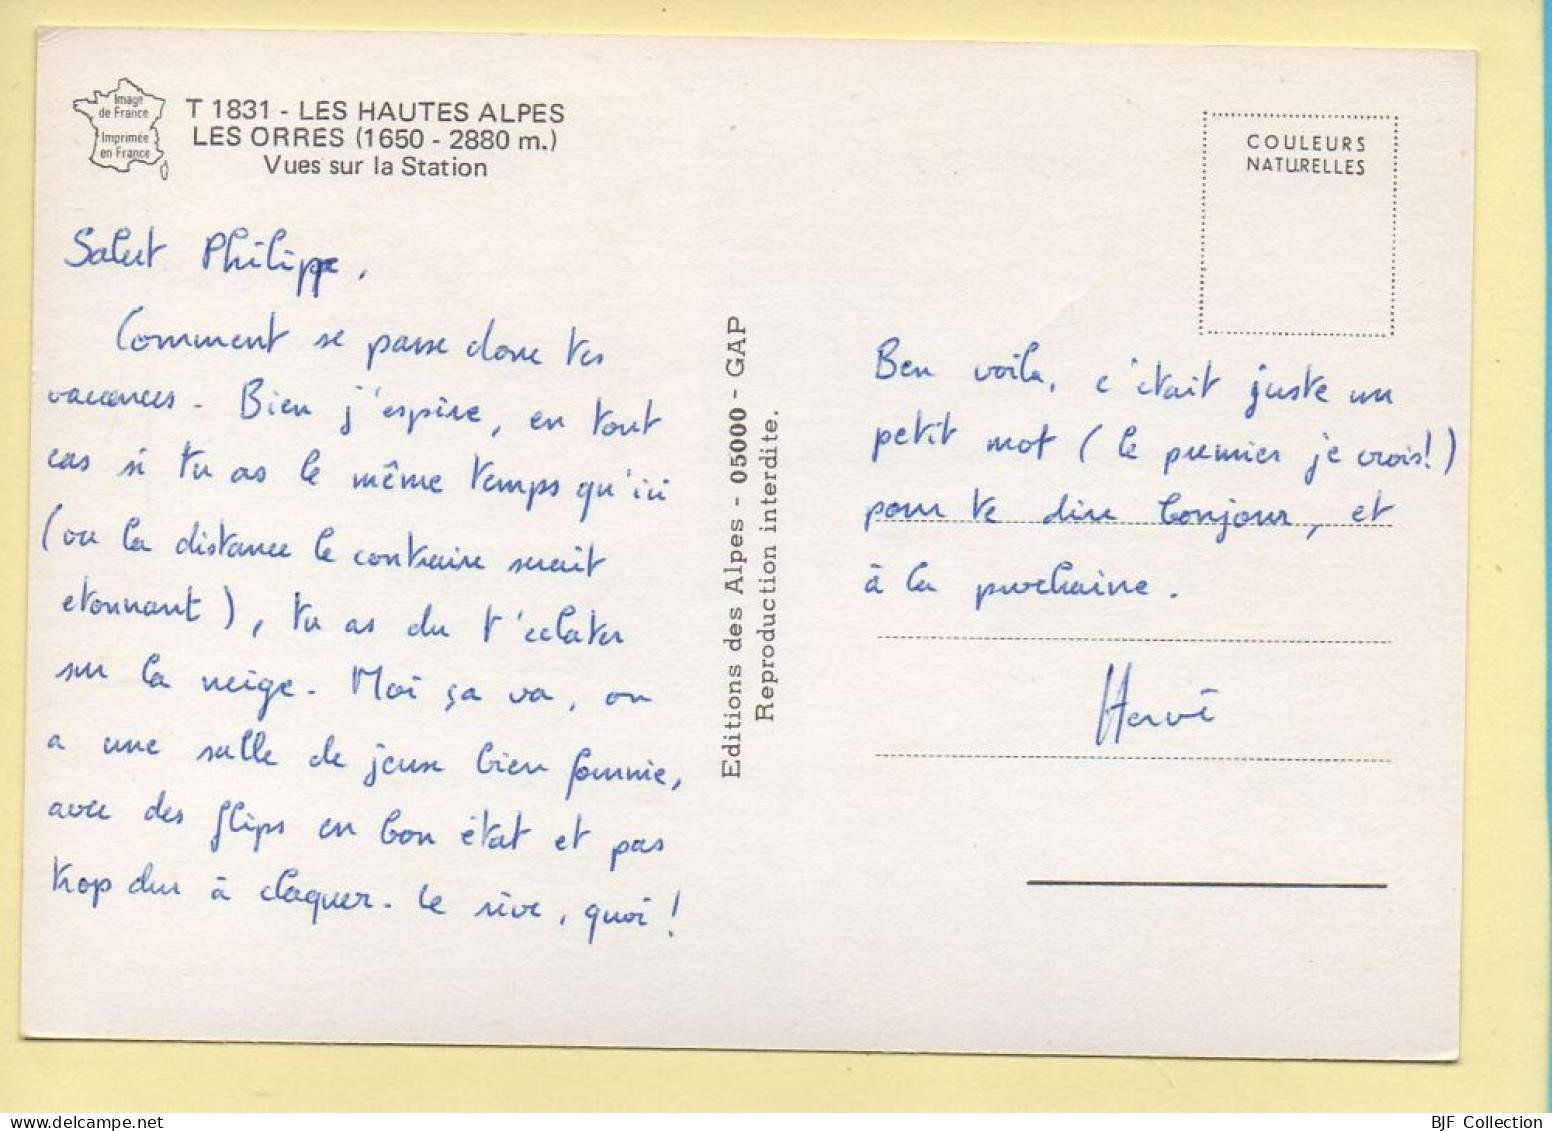 Image
de France
Imprimée
en France
T 1831 - LES HAUTES ALPES
LES ORRES (1650 - 2880 m.)
Vues sur la Station
COULEURS
NATURELLES
Salut Philippe,
Comment se passe donc tes
vacances. Bien j'espère, en tout
cas si tu as le même temps qu'ici
(ou la distance le contraire serait
etonnant), tu as du t'eclater
sur la neige. Moi ça va, on
a une salle de jeux bien fournie,
avec des flips en bon état et pas
trop dur à claquer. Le rêve, quoi!
Editions des Alpes - 05000 - GAP
Reproduction interdite.
Ben voila, c'était juste un
petit mot (le premier je crois!)
pour te dire bonjour, et
à la prochaine.
Hervé
BJF Collection